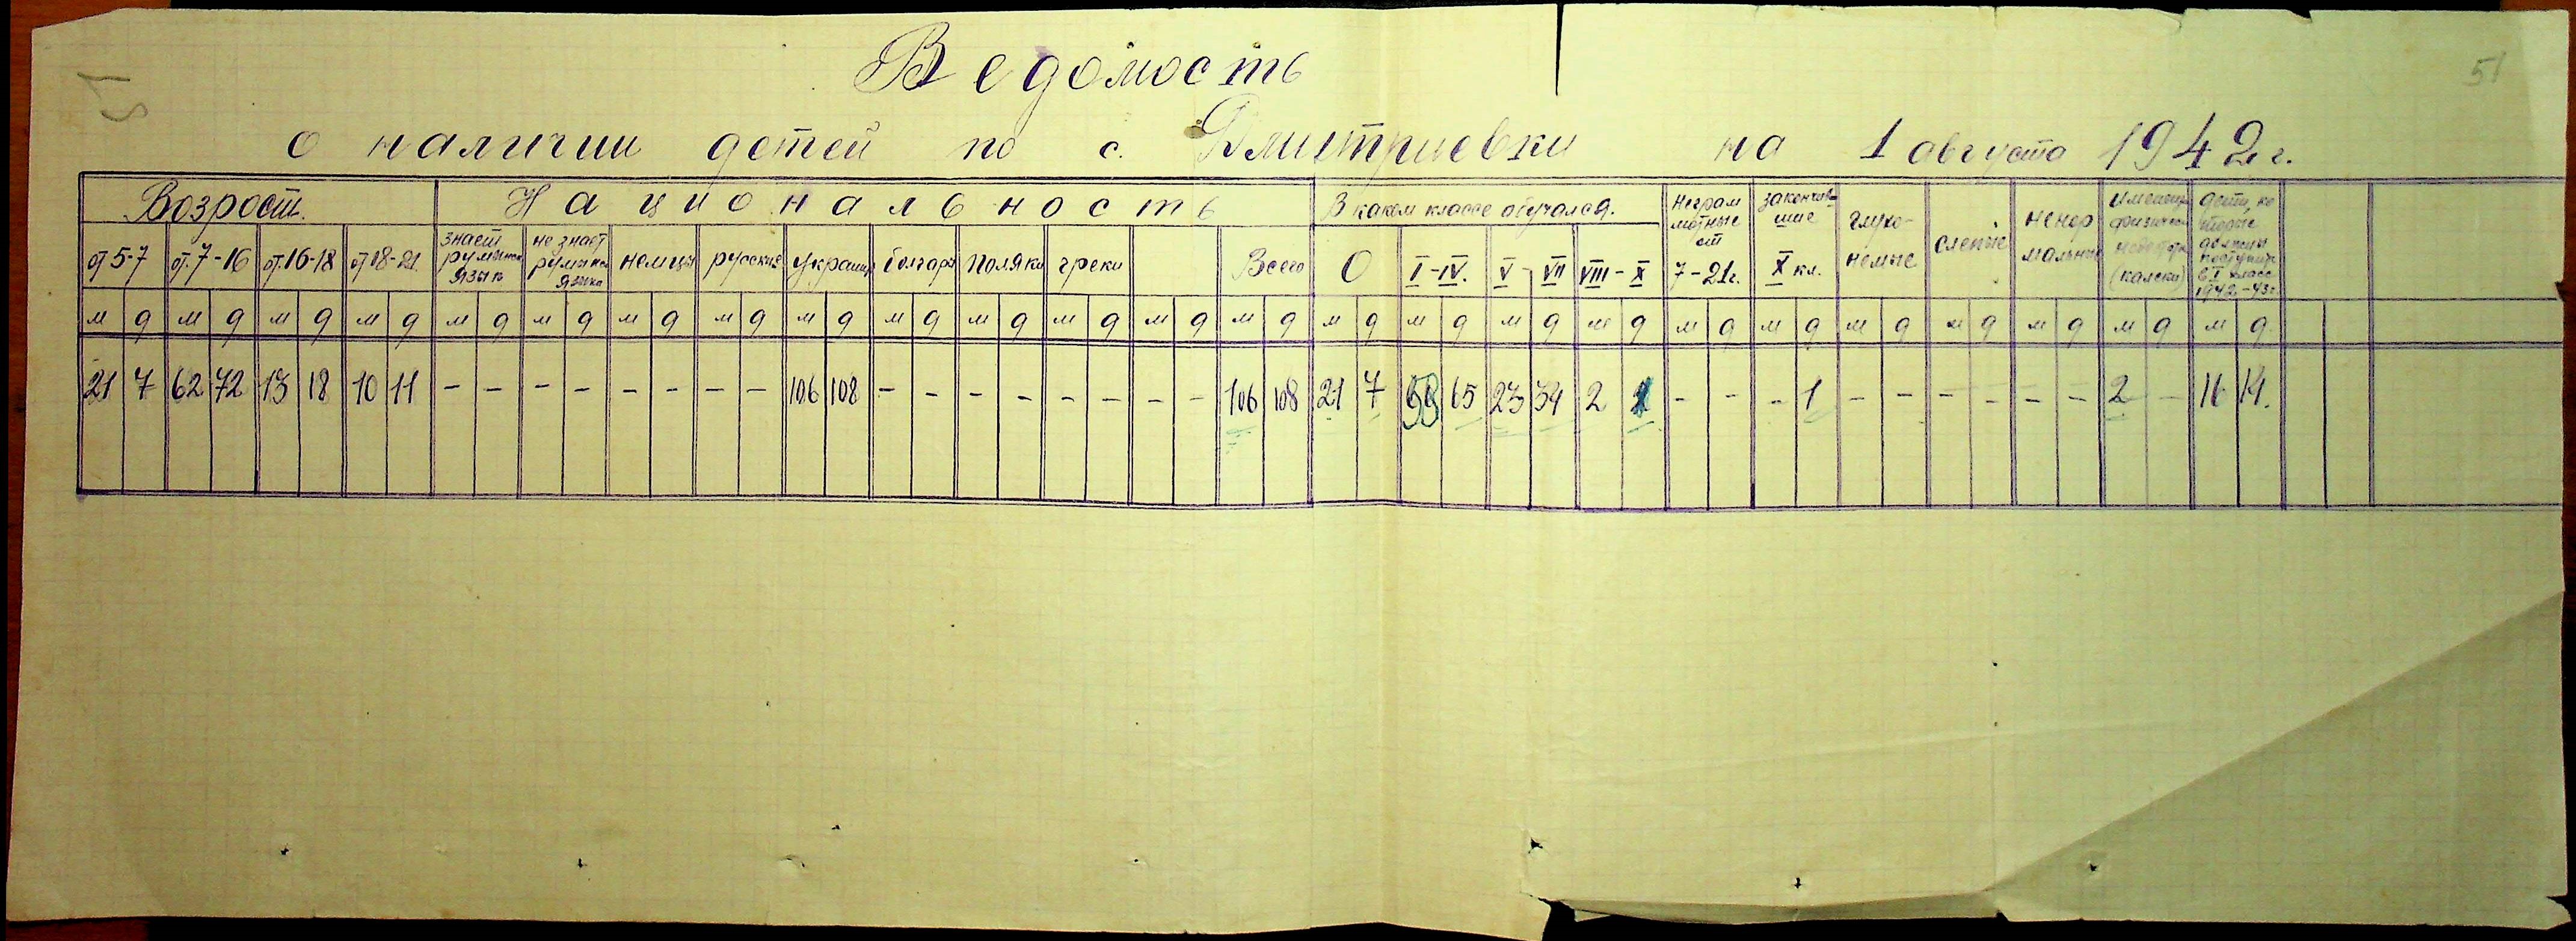 51
51
Ведомость
о наличии детей по с. Дмитриевки на 1 августа 1942 г.
Возрост. Национальность В каком классе обучался. Неграмотные от 7-21 г. закончившие X кл. глухонемые слепые ненормальные имеющие физически недостатки (калеки) дети, которые должны поступить в I класс 1942-43 г.
от 5-7 от. 7-16 от. 16-18 от 18-21 знает румынск язык не знает румынск языка немцы русские украинц болгары поляки греки Всего 0 I-IV. V-VII VIII-X
м д м д м д м д м д м д м д м д м д м д м д м д м д м д м д м д м д м д м д м д м д м д м д м д м д.
21 7 62 72 13 18 10 11 - - - - - - - - 106 108 - - - - - - - - 106 108 21 7 65 23 34 2 - - - 1 - - - - - - 2 - 16 14.